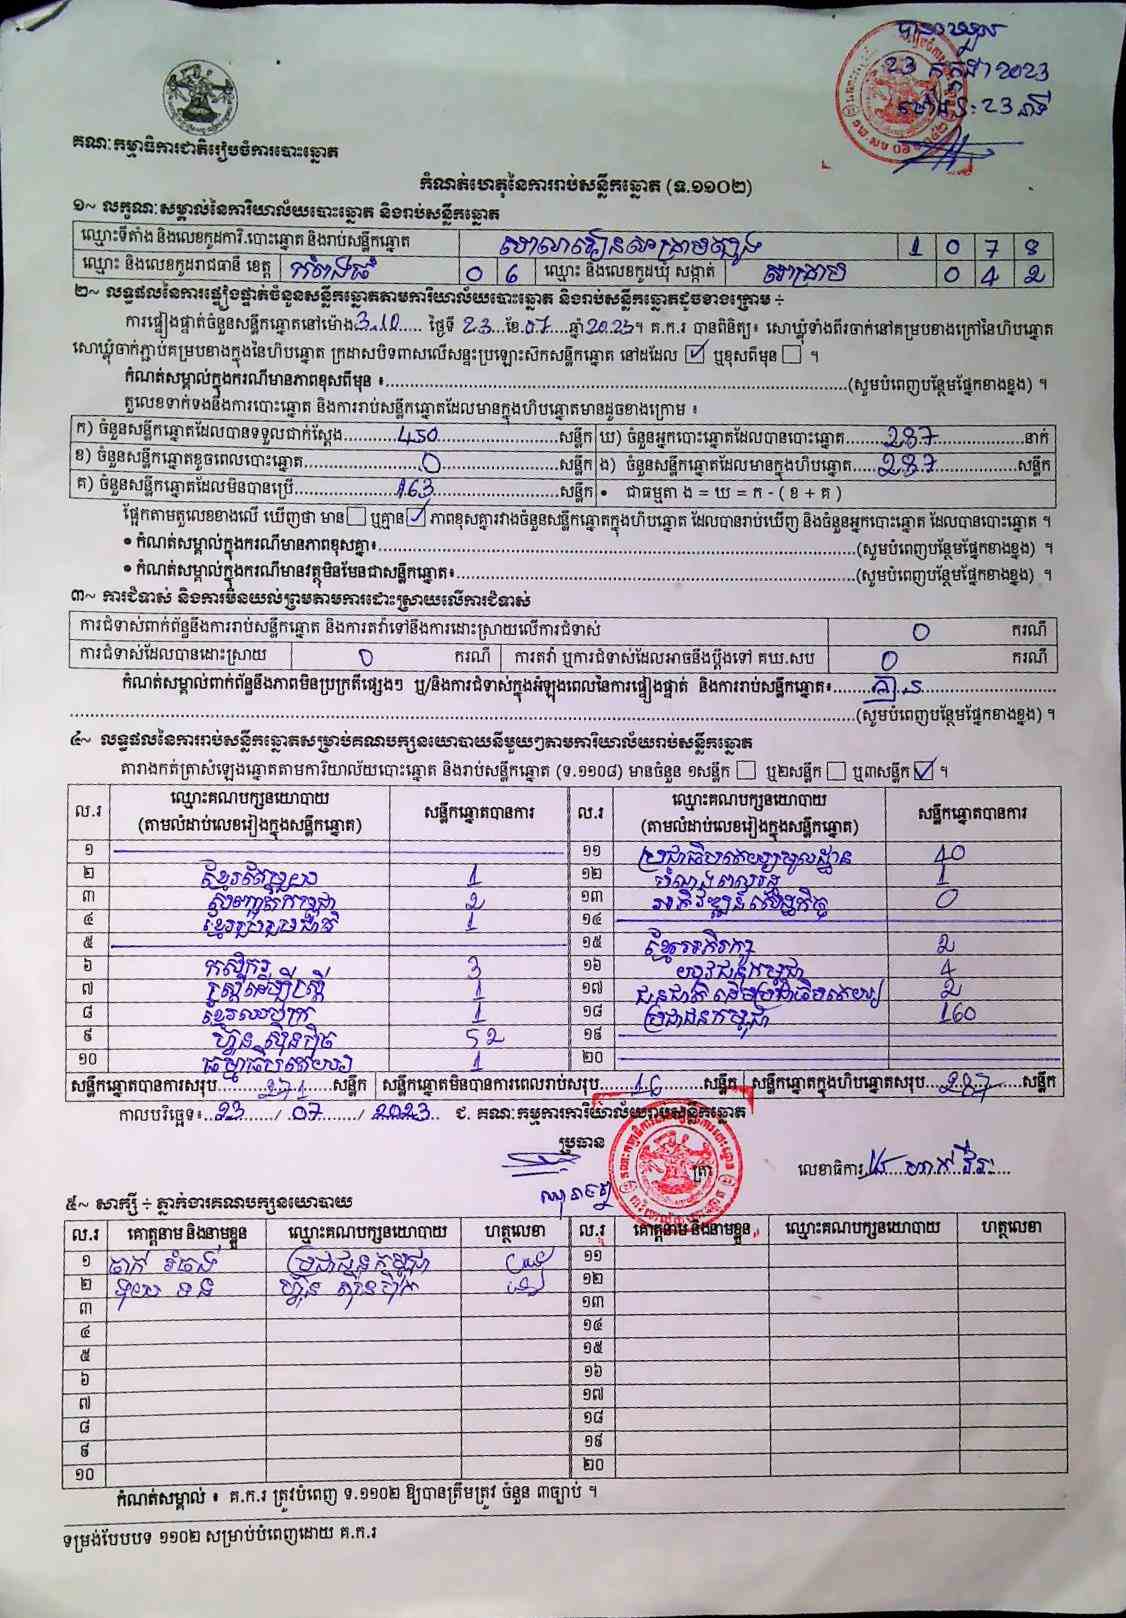 បានឃើញ
23 កក្កដា 2023
ម៉ោង : 23 នាទី
គណៈកម្មាធិការជាតិរៀបចំការបោះឆ្នោត
កំណត់ហេតុនៃការរាប់សន្លឹកឆ្នោត (ទ.១១០២)
១~ លក្ខណៈសម្គាល់នៃការិយាល័យបោះឆ្នោត និងរាប់សន្លឹកឆ្នោត
ឈ្មោះទីតាំង និងលេខកូដការិ.បោះឆ្នោត និងរាប់សន្លឹកឆ្នោត 1 0 7 8
ឈ្មោះ និងលេខកូដរាជធានី ខេត្ត កំពង់ធំ 0 6 ឈ្មោះ និងលេខកូដឃុំ សង្កាត់ 0 4 2
២~ លទ្ធផលនៃការផ្ទៀងផ្ទាត់ចំនួនសន្លឹកឆ្នោតតាមការិយាល័យបោះឆ្នោត និងរាប់សន្លឹកឆ្នោតដូចខាងក្រោម ÷
ការផ្ទៀងផ្ទាត់ចំនួនសន្លឹកឆ្នោតនៅម៉ោង 3.10 ថ្ងៃទី 23 ខែ 07 ឆ្នាំ 2023។ គ.ក.រ បានពិនិត្យ៖ សោឃ្លុំទាំងពីរចាក់នៅគម្របខាងក្រៅនៃហិបឆ្នោត
សោឃ្លុំចាក់ភ្ជាប់គម្របខាងក្នុងនៃហិបឆ្នោត ក្រដាសបិទពាសលើសន្ទះប្រឡោះស៊កសន្លឹកឆ្នោត នៅដដែល ☑ ឬខុសពីមុន ☐ ។
កំណត់សម្គាល់ក្នុងករណីមានភាពខុសពីមុន ៖ (សូមបំពេញបន្ថែមផ្នែកខាងខ្នង) ។
តួលេខទាក់ទងនឹងការបោះឆ្នោត និងការរាប់សន្លឹកឆ្នោតដែលមានក្នុងហិបឆ្នោតមានដូចខាងក្រោម ៖
ក) ចំនួនសន្លឹកឆ្នោតដែលបានទទួលជាក់ស្តែង 450 សន្លឹក ឃ) ចំនួនអ្នកបោះឆ្នោតដែលបានបោះឆ្នោត 287 នាក់
ខ) ចំនួនសន្លឹកឆ្នោតខូចពេលបោះឆ្នោត 0 សន្លឹក ង) ចំនួនសន្លឹកឆ្នោតដែលមានក្នុងហិបឆ្នោត 287 សន្លឹក
គ) ចំនួនសន្លឹកឆ្នោតដែលមិនបានប្រើ 163 សន្លឹក • ជាធម្មតា ង = ឃ = ក - ( ខ + គ )
ផ្អែកតាមតួលេខខាងលើ ឃើញថា មាន ☐ ឬគ្មាន ☑ ភាពខុសគ្នារវាងចំនួនសន្លឹកឆ្នោតក្នុងហិបឆ្នោត ដែលបានរាប់ឃើញ និងចំនួនអ្នកបោះឆ្នោត ដែលបានបោះឆ្នោត ។
• កំណត់សម្គាល់ក្នុងករណីមានភាពខុសគ្នា៖ (សូមបំពេញបន្ថែមផ្នែកខាងខ្នង) ។
• កំណត់សម្គាល់ក្នុងករណីមានវត្ថុមិនមែនជាសន្លឹកឆ្នោត៖ (សូមបំពេញបន្ថែមផ្នែកខាងខ្នង) ។
៣~ ការជំទាស់ និងការមិនយល់ព្រមតាមការដោះស្រាយលើការជំទាស់
ការជំទាស់ពាក់ព័ន្ធនឹងការរាប់សន្លឹកឆ្នោត និងការតវ៉ាទៅនឹងការដោះស្រាយលើការជំទាស់ 0 ករណី
ការជំទាស់ដែលបានដោះស្រាយ 0 ករណី ការតវ៉ា ឬការជំទាស់ដែលអាចនឹងប្តឹងទៅ គឃ.សប 0 ករណី
កំណត់សម្គាល់ពាក់ព័ន្ធនឹងភាពមិនប្រក្រតីផ្សេងៗ ឬ/និងការជំទាស់ក្នុងអំឡុងពេលនៃការផ្ទៀងផ្ទាត់ និងការរាប់សន្លឹកឆ្នោត៖ គ្មាន
(សូមបំពេញបន្ថែមផ្នែកខាងខ្នង) ។
៤~ លទ្ធផលនៃការរាប់សន្លឹកឆ្នោតសម្រាប់គណបក្សនយោបាយនីមួយៗតាមការិយាល័យរាប់សន្លឹកឆ្នោត
តារាងកត់ត្រាសំឡេងឆ្នោតតាមការិយាល័យបោះឆ្នោត និងរាប់សន្លឹកឆ្នោត (ទ.១១០៨) មានចំនួន ១សន្លឹក ☐ ឬ២សន្លឹក ☐ ឬ៣សន្លឹក ☑ ។
ល.រ ឈ្មោះគណបក្សនយោបាយ (តាមលំដាប់លេខរៀងក្នុងសន្លឹកឆ្នោត) សន្លឹកឆ្នោតបានការ ល.រ ឈ្មោះគណបក្សនយោបាយ (តាមលំដាប់លេខរៀងក្នុងសន្លឹកឆ្នោត) សន្លឹកឆ្នោតបានការ
១ ១១ ប្រជាធិបតេយ្យមូលដ្ឋាន 40
២ ខ្មែរតែមួយ 1 ១២ បំណងពលរដ្ឋ 1
៣ សញ្ជាតិកម្ពុជា 2 ១៣ អភិវឌ្ឍន៍សេដ្ឋកិច្ច 0
៤ ខ្មែររួបរួមជាតិ 1 ១៤
៥ ១៥ ខ្មែរអភិរក្ស 2
៦ កសិករ 3 ១៦ យុវជនកម្ពុជា 4
៧ ស្ត្រីដើម្បីស្ត្រី 1 ១៧ ជនជាតិដើមប្រជាធិបតេយ្យ 2
៨ ខ្មែរឈប់ក្រ 1 ១៨ ប្រជាជនកម្ពុជា 160
៩ ហ្វ៊ុនស៊ិនប៉ិច 52 ១៩
១០ ធម្មាធិបតេយ្យ 1 ២០
សន្លឹកឆ្នោតបានការសរុប 271 សន្លឹក សន្លឹកឆ្នោតមិនបានការពេលរាប់សរុប 16 សន្លឹក សន្លឹកឆ្នោតក្នុងហិបឆ្នោតសរុប 287 សន្លឹក
កាលបរិច្ឆេទ៖ 23 / 07 / 2023 ជ. គណៈកម្មការការិយាល័យរាប់សន្លឹកឆ្នោត
ប្រធាន ត្រា លេខាធិការ
៥~ សាក្សី ÷ ភ្នាក់ងារគណបក្សនយោបាយ
ល.រ គោត្តនាម និងនាមខ្លួន ឈ្មោះគណបក្សនយោបាយ ហត្ថលេខា ល.រ គោត្តនាម និងនាមខ្លួន ឈ្មោះគណបក្សនយោបាយ ហត្ថលេខា
១ ប្រជាជនកម្ពុជា ១១
២ ហ្វ៊ុនស៊ិនប៉ិច ១២
៣ ១៣
៤ ១៤
៥ ១៥
៦ ១៦
៧ ១៧
៨ ១៨
៩ ១៩
១០ ២០
កំណត់សម្គាល់ ៖ គ.ក.រ ត្រូវបំពេញ ទ.១១០២ ឱ្យបានត្រឹមត្រូវ ចំនួន ៣ច្បាប់ ។
ទម្រង់បែបបទ ១១០២ សម្រាប់បំពេញដោយ គ.ក.រ